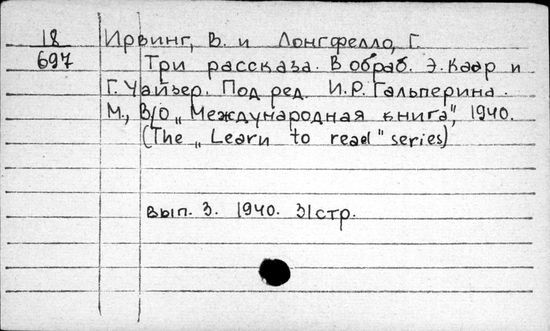 18 Ирвинг, В. и Лонгфелло, Г.
697 Три рассказа. В обраб. Э. Каар и
Г. Уайзер. Под ред. И.Р. Гальперина.
М., В/О „Международная книга", 1940.
(The „Learn to read" series)
вып. 3. 1940. 31стр.